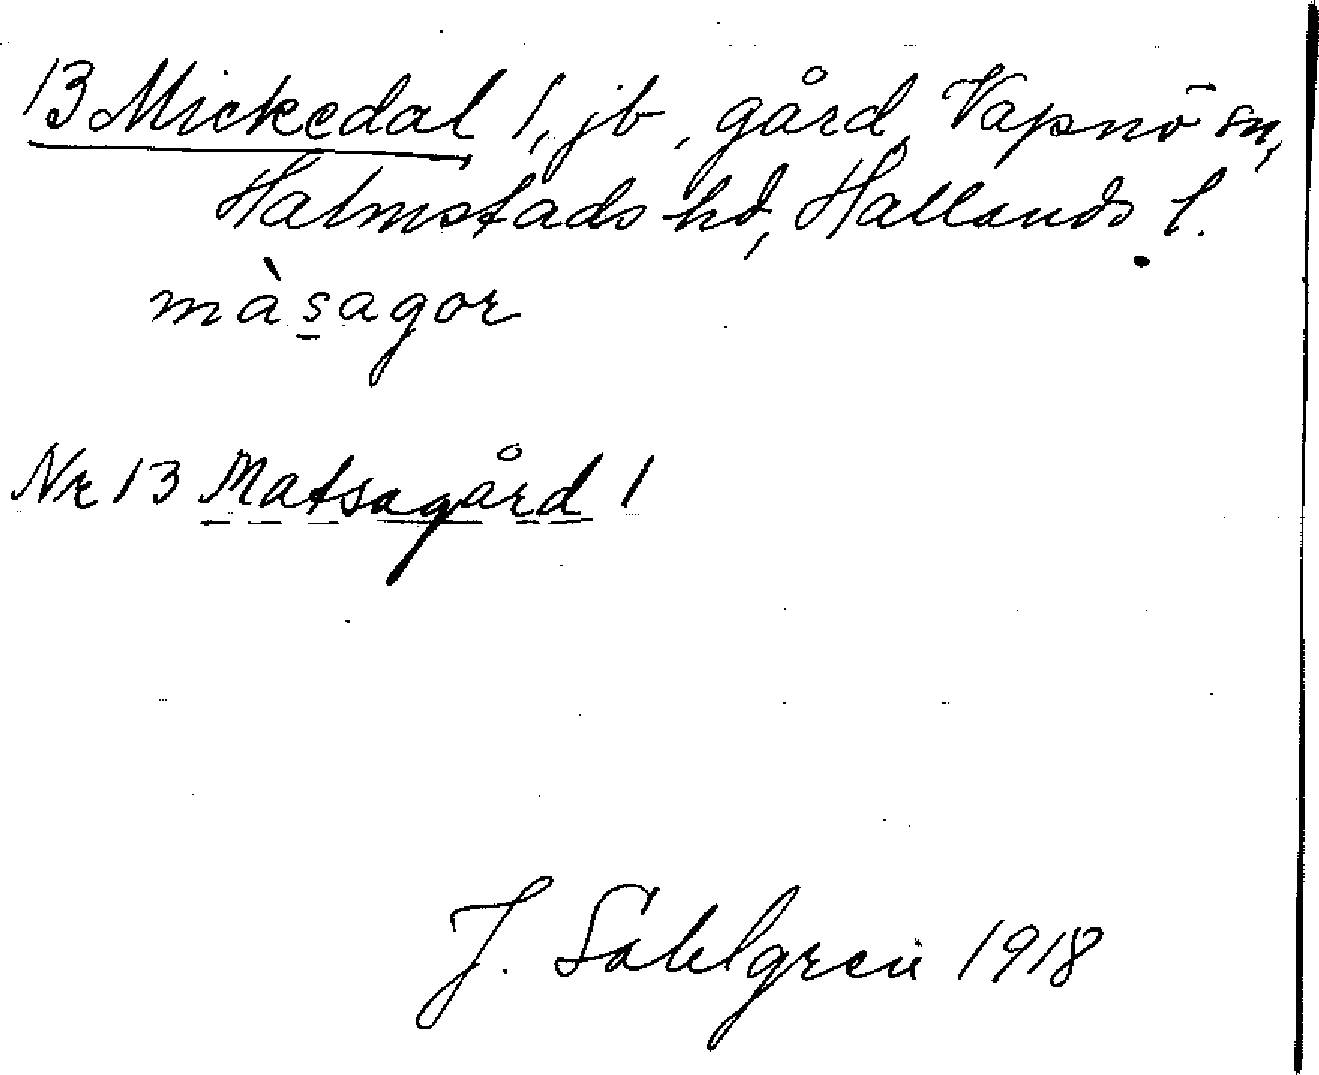 13 Mickedal 1, jb, gård, Vapnö sn,
Halmstads hd, Hallands l.
màsagor
Nr 13 Matsagård 1
J. Sahlgren 1918